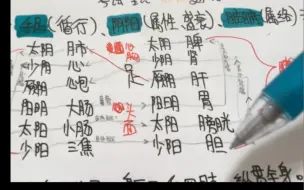 (循行)、阴阳(属性、盛衰)、脏腑(属络)
太阴 肺 胸 太阴 脾
少阴 心 足 少阴
厥阴 心包 厥阴 肝
阳明 大肠 头 阳明 胃
太阳 小肠 面 太阳 膀胱
少阳 三焦 少阳 胆
全身